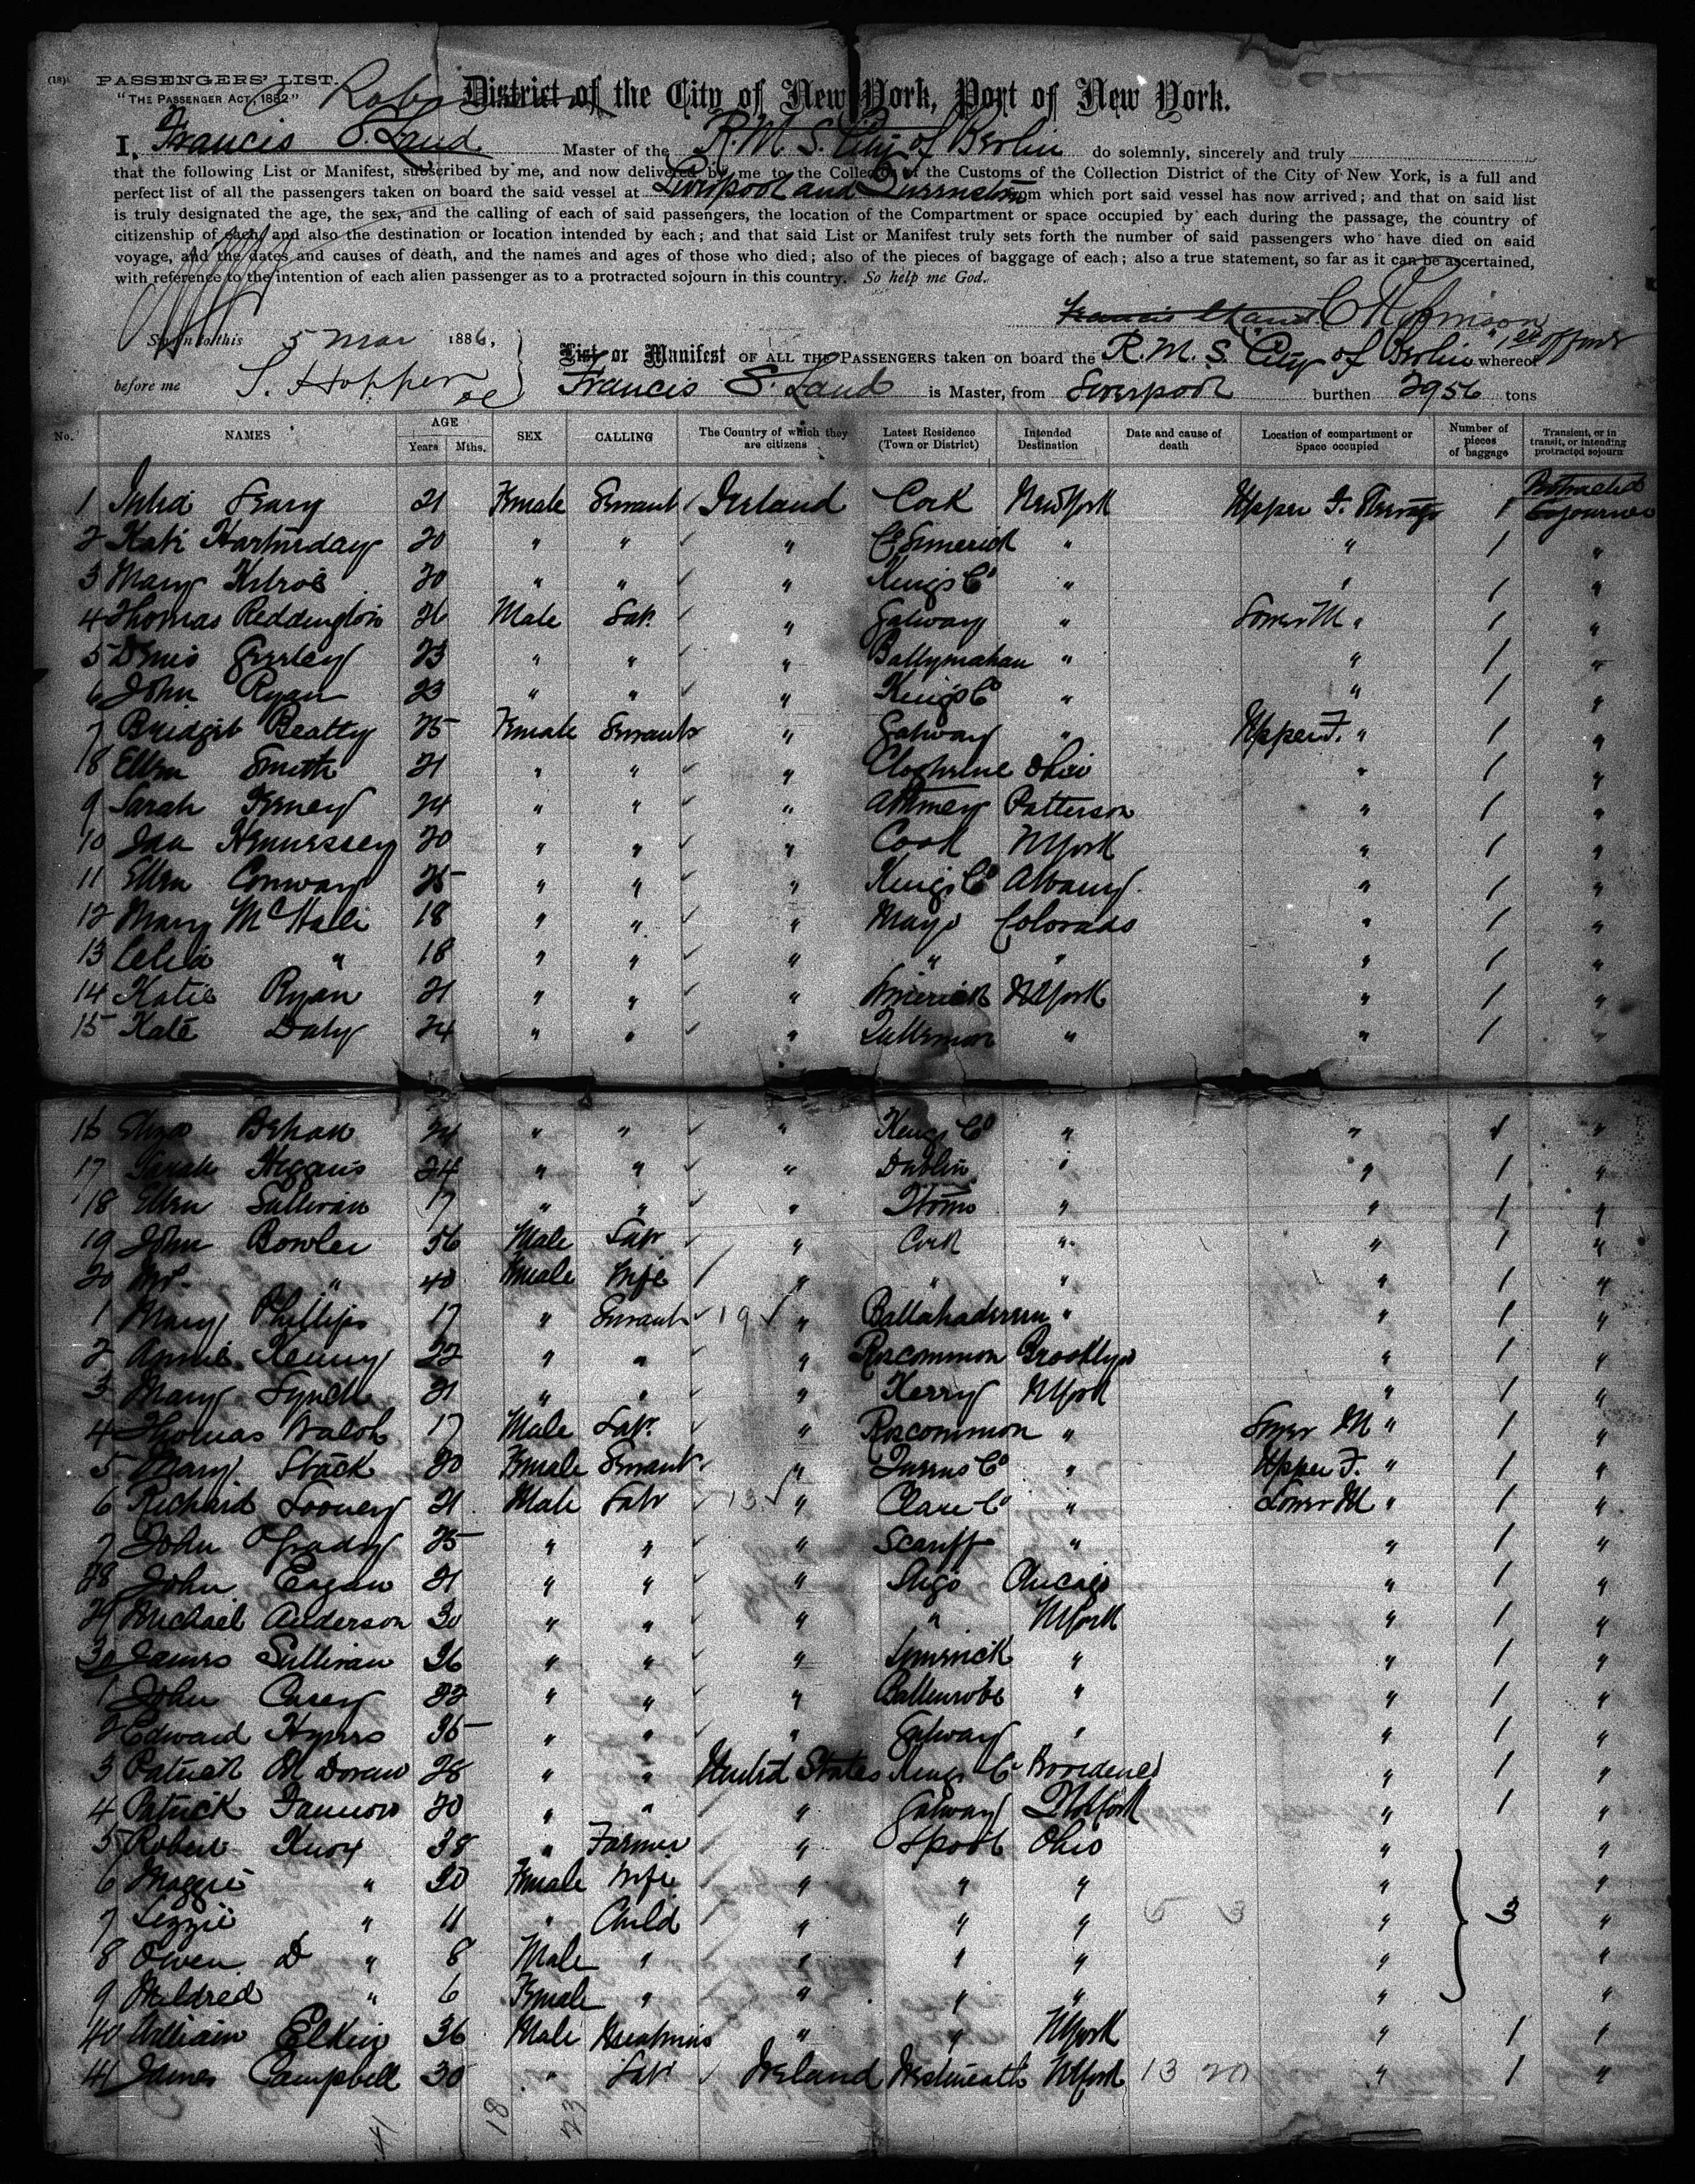 (18)
PASSENGERS' LIST.
"THE PASSENGER ACT, 1882"
District of the City of New York, Port of New York.
I, Francis S. Land Master of the R.M.S. City of Berlin do solemnly, sincerely and truly
that the following List or Manifest, subscribed by me, and now delivered by me to the Collector of the Customs of the Collection District of the City of New York, is a full and
perfect list of all the passengers taken on board the said vessel at Liverpool and Queenstown from which port said vessel has now arrived; and that on said list
is truly designated the age, the sex, and the calling of each of said passengers, the location of the Compartment or space occupied by each during the passage, the country of
citizenship of each, and also the destination or location intended by each; and that said List or Manifest truly sets forth the number of said passengers who have died on said
voyage, and the dates and causes of death, and the names and ages of those who died; also of the pieces of baggage of each; also a true statement, so far as it can be ascertained,
with reference to the intention of each alien passenger as to a protracted sojourn in this country. So help me God.
Francis S Land
Sworn to this 5 Mar 1886,
before me S. Hopper
List or Manifest OF ALL THE PASSENGERS taken on board the R.M.S. City of Berlin whereof
Francis S. Land is Master, from Liverpool burthen 2956 tons
No. NAMES AGE Years Mths. SEX CALLING The Country of which they are citizens Latest Residence (Town or District) Intended Destination Date and cause of death Location of compartment or Space occupied Number of pieces of baggage Transient, or in transit, or intending protracted sojourn
1 Julia 21 Female Servant Ireland Cork New York Upper F. Steerage 1 Protracted Sojourn
2 Kate 20 " " " Co Limerick " " 1 "
3 Mary Kilroe 20 " " " Kings Co " " 1 "
4 Thomas Reddington 26 Male Lab. " Galway " Lower M " 1 "
5 Denis 23 " " " Ballymahan " " 1 "
6 John Ryan 23 " " " Kings Co " " 1 "
7 Bridget Beatty 25 Female Servant " Galway " Upper F. " 1 "
8 Ellen Smith 21 " " " Ohio " 1 "
9 Sarah 24 " " " Patterson " 1 "
10 Hennessey 20 " " " Cork NYork " 1 "
11 Ellen Conway 25 " " " Kings Co Albany " 1 "
12 Mary McHale 18 " " " Mayo Colorado " 1 "
13 Celia " 18 " " " " " " 1 "
14 Katie Ryan 21 " " " Limerick NYork " 1 "
15 Kate Daly 24 " " " " " 1 "
16 Eliza Behan 24 " " " Kings Co " " 1 "
17 Sarah 24 " " " Dublin " " 1 "
18 Ellen Sullivan 17 " " " " " 1 "
19 John Bowler 56 Male Lab " Cork " " 1 "
20 Mrs " 40 Female Wife " " " " 1 "
1 Mary Phillips 17 " Servant 19 " Ballahadereen " " 1 "
2 Annie Kenny 22 " " " Roscommon Brooklyn " 1 "
3 Mary Lynch 21 " " " Kerry NYork " 1 "
4 Thomas Walsh 17 Male Lab. " Roscommon " Lower M " 1 "
5 Mary Stack 20 Female Servant " Queens Co " Upper F. " 1 "
6 Richard Looney 21 Male Lab 13 " Clare Co " Lower M " 1 "
7 John OGrady 25 " " " Scariff " " 1 "
28 John Eagan 21 " " " Sligo Chicago " 1 "
29 Michael Anderson 30 " " " " NYork " 1 "
30 James Sullivan 26 " " " Limerick " " 1 "
1 John Casey 22 " " " Ballenrobe " " 1 "
2 Edward 35 " " " Galway " " 1 "
3 Patrick 28 " " United States Kings Co Providence " 1 "
4 Patrick Fannon 20 " " " Galway NYork " 1 "
5 Robert Knox 38 " Farmer " Lpool Ohio " "
6 Maggie " 30 Female Wife " " " " "
7 Lizzie " 11 " Child " " " 5 3 " 3 "
8 Owen D " 8 Male " " " " " "
9 Mildred " 6 Female " " " " " "
40 William Elkin 36 Male " " NYork " 1 "
41 James Campbell 30 " Lab " Ireland Westmeath NYork 13 20 " 1 "
41 18 23